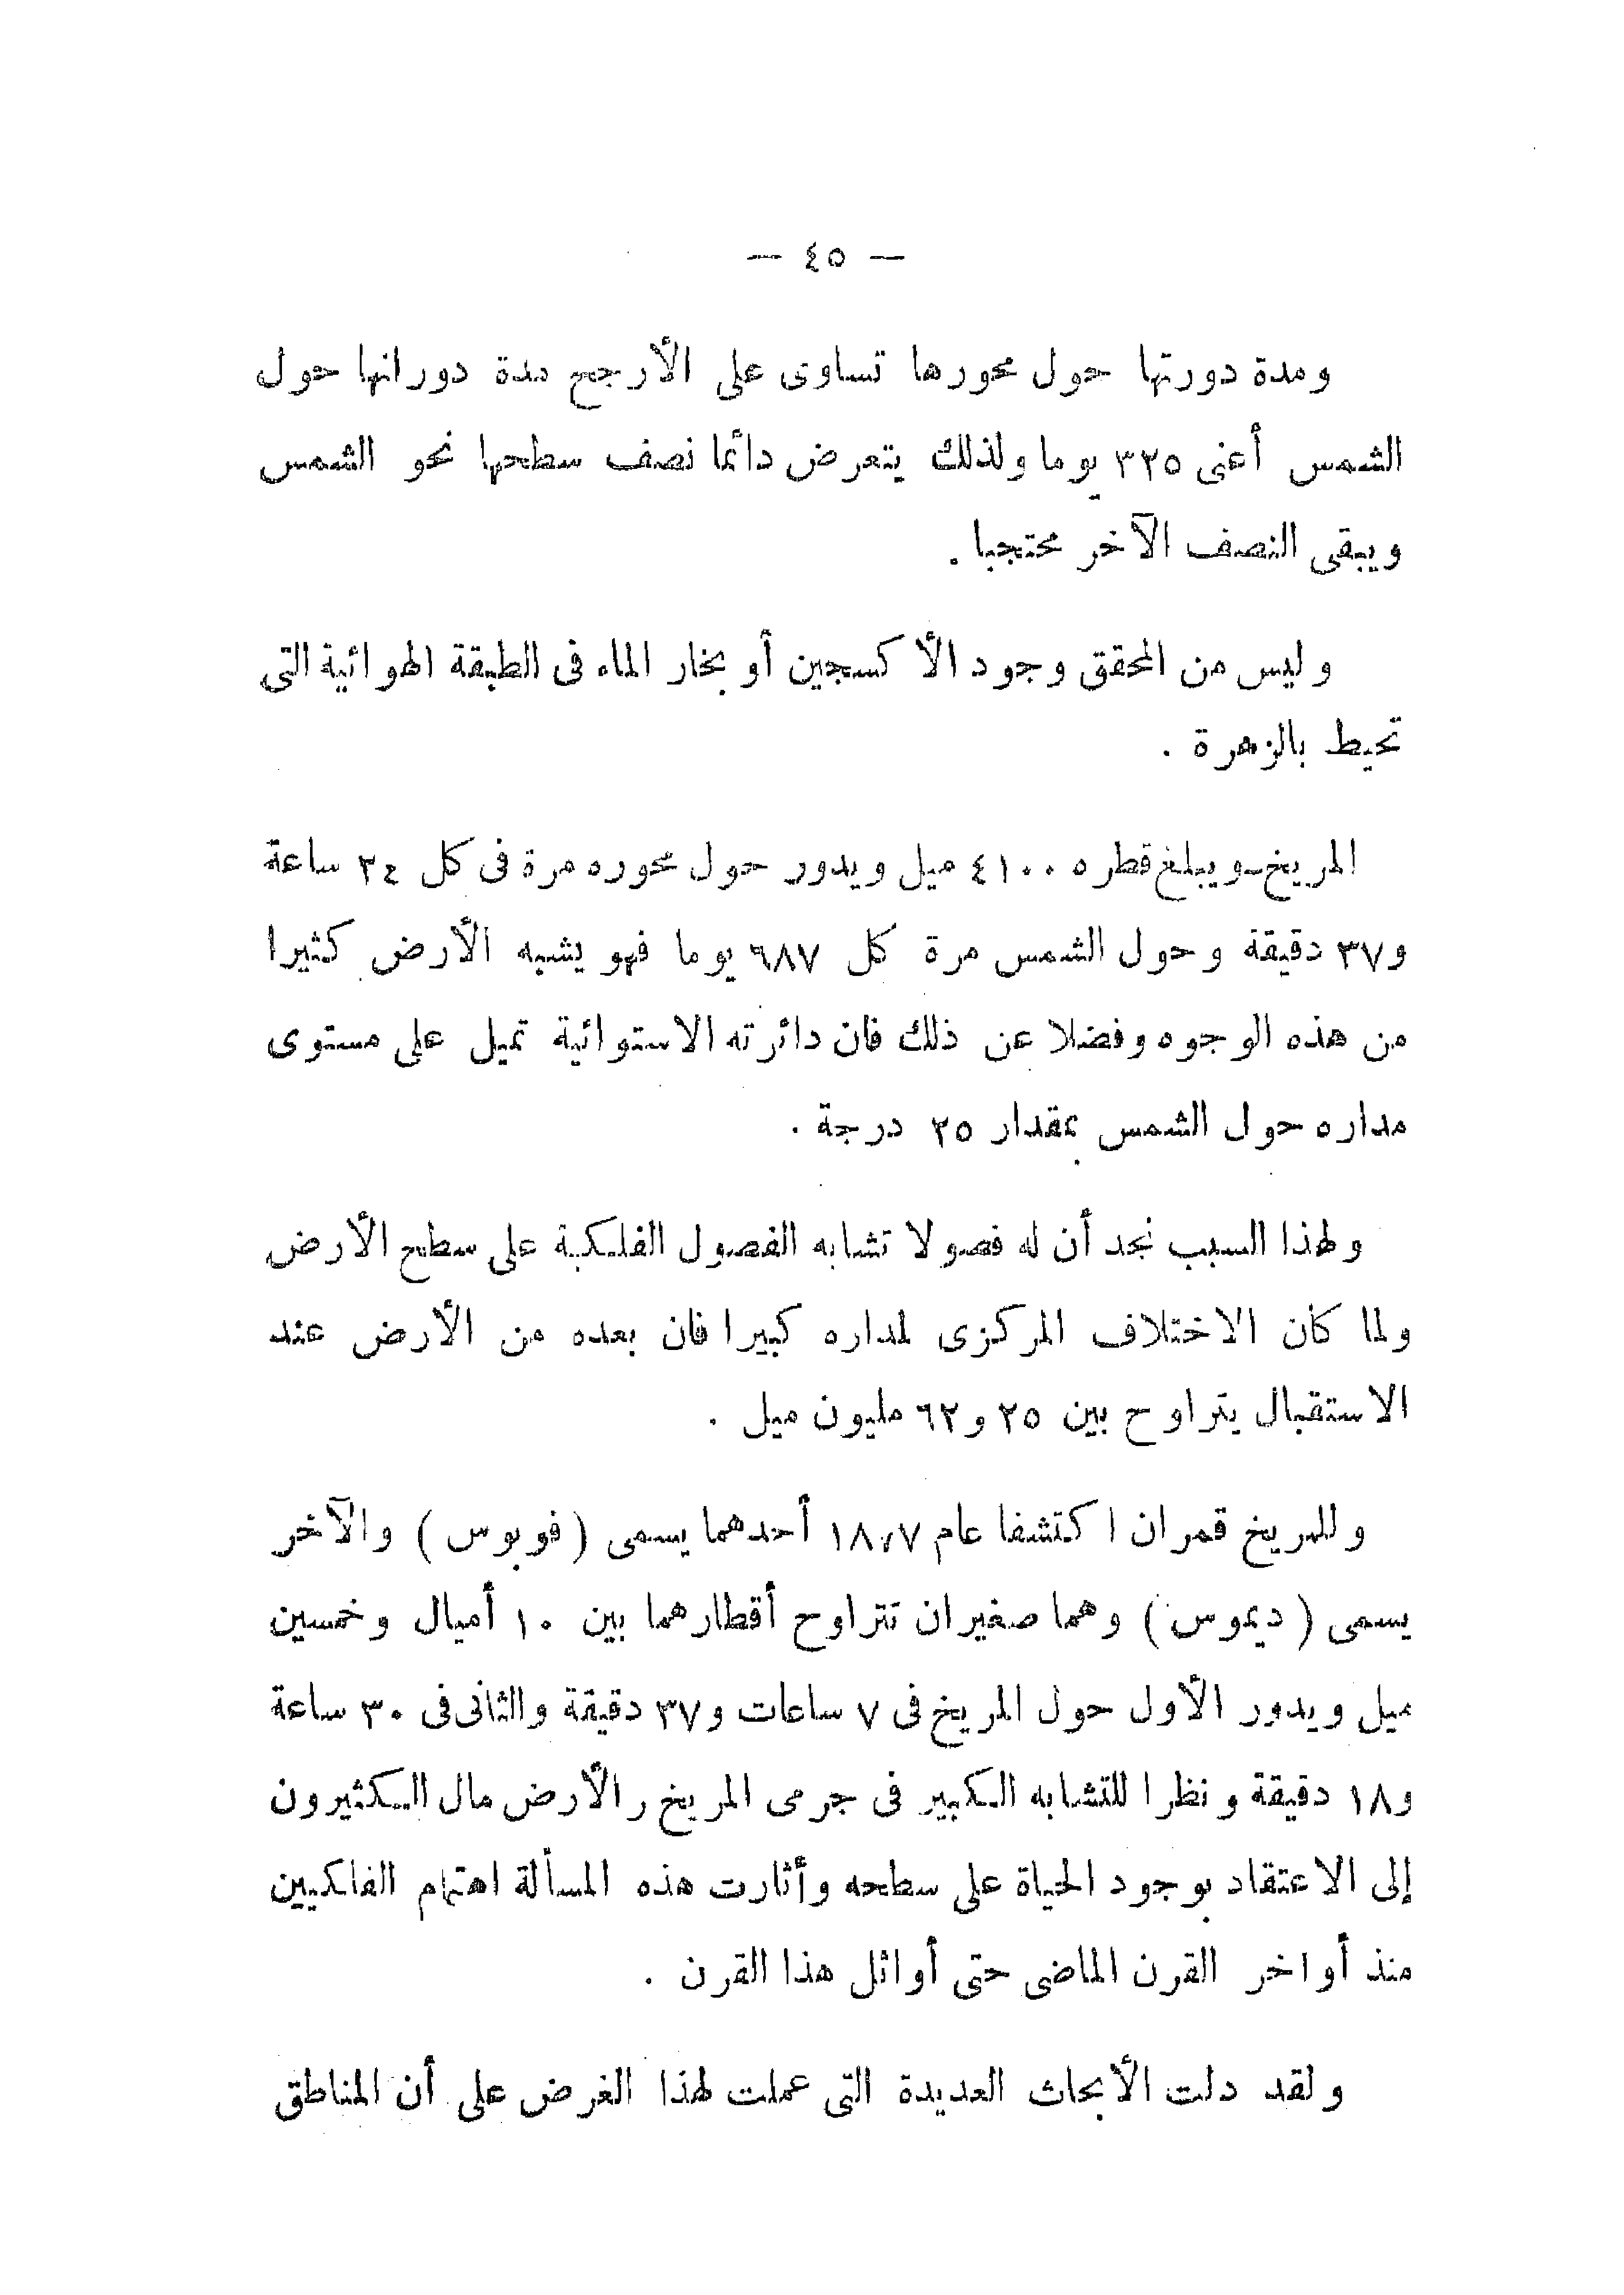 — ٤٥ —
ومدة دورتها حول محورها تساوى على الأرجح مدة دورانها حول
الشمس أعنى ٣٢٥ يوما ولذلك يتعرض دائما نصف سطحها نحو الشمس
ويبقى النصف الآخر محتجبا .
وليس من المحقق وجود الأكسجين أو بخار الماء فى الطبقة الهوائية التى
تحيط بالزهرة .
المريخ ـ ويبلغ قطره ٤١٠٠ ميل ويدور حول محوره مرة فى كل ٢٤ ساعة
و٣٧ دقيقة وحول الشمس مرة كل ٦٨٧ يوما فهو يشبه الأرض كثيرا
من هذه الوجوه وفضلا عن ذلك فان دائرته الاستوائية تميل على مستوى
مداره حول الشمس بمقدار ٢٥ درجة .
ولهذا السبب نجد أن له فصولا تشابه الفصول الفلكية على سطح الأرض
ولما كان الاختلاف المركزى لمداره كبيرا فان بعده من الأرض عند
الاستقبال يتراوح بين ٢٥ و٦٢ مليون ميل .
وللمريخ قمران اكتشفا عام ١٨٧٧ أحدهما يسمى ( فوبوس ) والآخر
يسمى ( ديموس ) وهما صغيران تتراوح أقطارهما بين ١٠ أميال وخمسين
ميل ويدور الأول حول المريخ فى ٧ ساعات و٣٧ دقيقة والثانى فى ٣٠ ساعة
و١٨ دقيقة ونظرا للتشابه الكبير فى جرمى المريخ والأرض مال الكثيرون
إلى الاعتقاد بوجود الحياة على سطحه وأثارت هذه المسألة اهتمام الفلكيين
منذ أواخر القرن الماضى حتى أوائل هذا القرن .
ولقد دلت الأبحاث العديدة التى عملت لهذا الغرض على أن المناطق